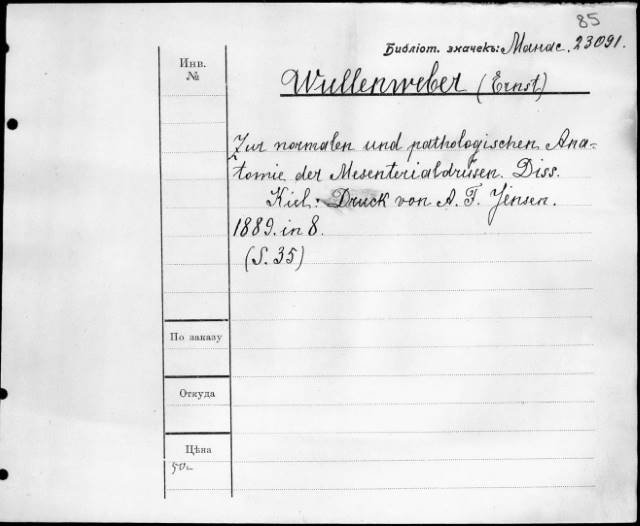 85
Библіот. значекъ: Манас. 23091.
Инв.
№
Wullenweber (Ernst)
Zur normalen und pathologischen Ana-
tomie der Mesenterialdrüsen. Diss.
Kiel: Druck von A. F. Jensen.
1889. in 8.
(S. 35)
По заказу
Откуда
Цѣна